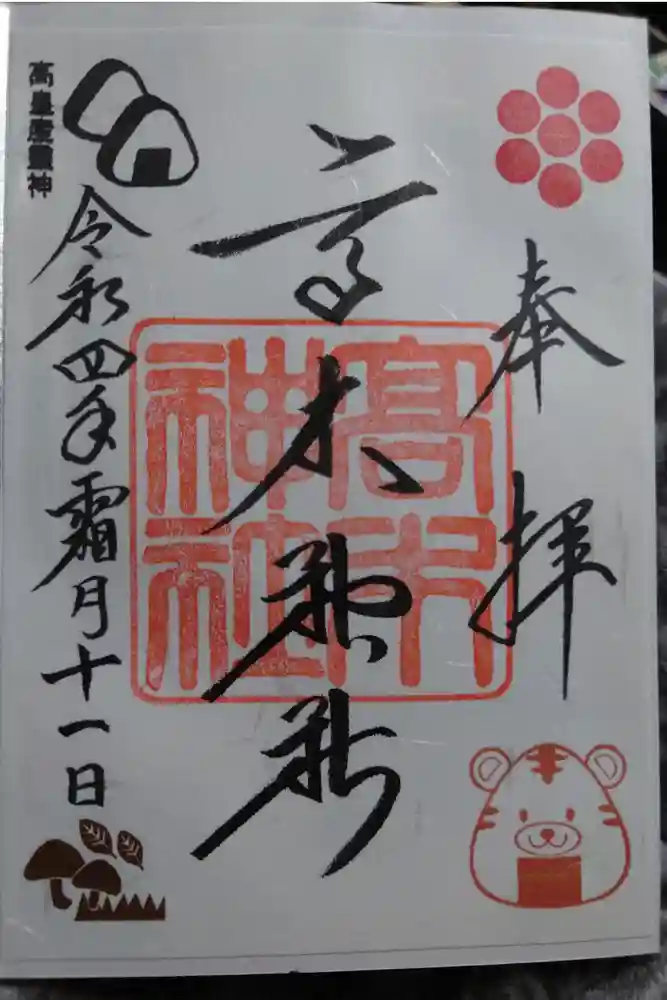 奉拝
高木神社
高木神社
令和四年霜月十一日
高皇産霊神